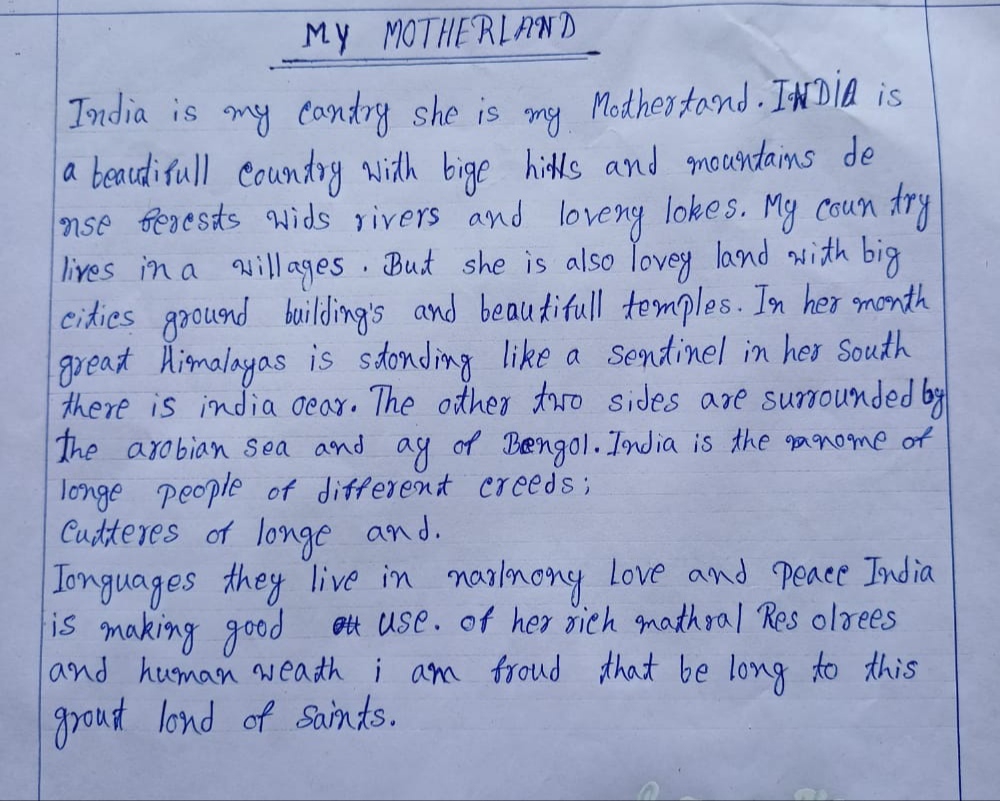 MY MOTHERLAND
India is my cantry she is my Mothertand. INDIA is
a beautifull country with bige hills and mountains de
nse ferests wids rivers and loveny lokes. My coun try
lives in a willages. But she is also lovey land with big
cities ground building's and beautifull temples. In her month
great Himalayas is stonding like a sentinel in her south
there is india ocar. The other two sides are surrounded by
the arobian sea and ay of Bengol. India is the nome of
longe people of different creeds;
Cutteres of longe and.
Ionguages they live in narlnony Love and peace India
is making good use. of her rich mathral Res olrees
and human weath i am froud that be long to this
grout lond of saints.